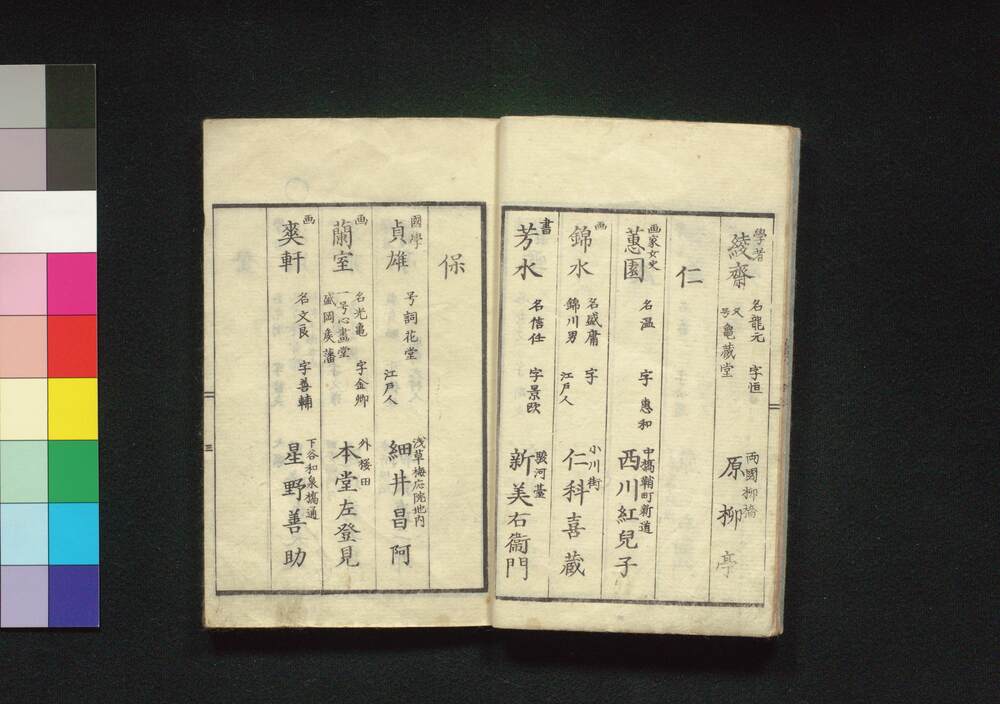 學者
綾齋
名龍元 字恒
又号 亀蔵堂
両國柳橋
原柳亭
仁
画家女史
蕙園
名温 字惠和
中槗鞘町新道
西川紅兒子
画
錦水
名盛庸 字
錦川男 江戸人
小川街
仁科喜蔵
書
芳水
名信任 字景欧
駿河臺
新美右衞門
保
國學
貞雄
号詞花堂
江戸人
浅草梅應院地内
細井昌阿
画
蘭室
名光亀 字金卿
一号心畫堂
盛岡矦藩
外桜田
本堂左登見
画
爽軒
名文良 字善輔
下谷和泉槗通
星野善助
三